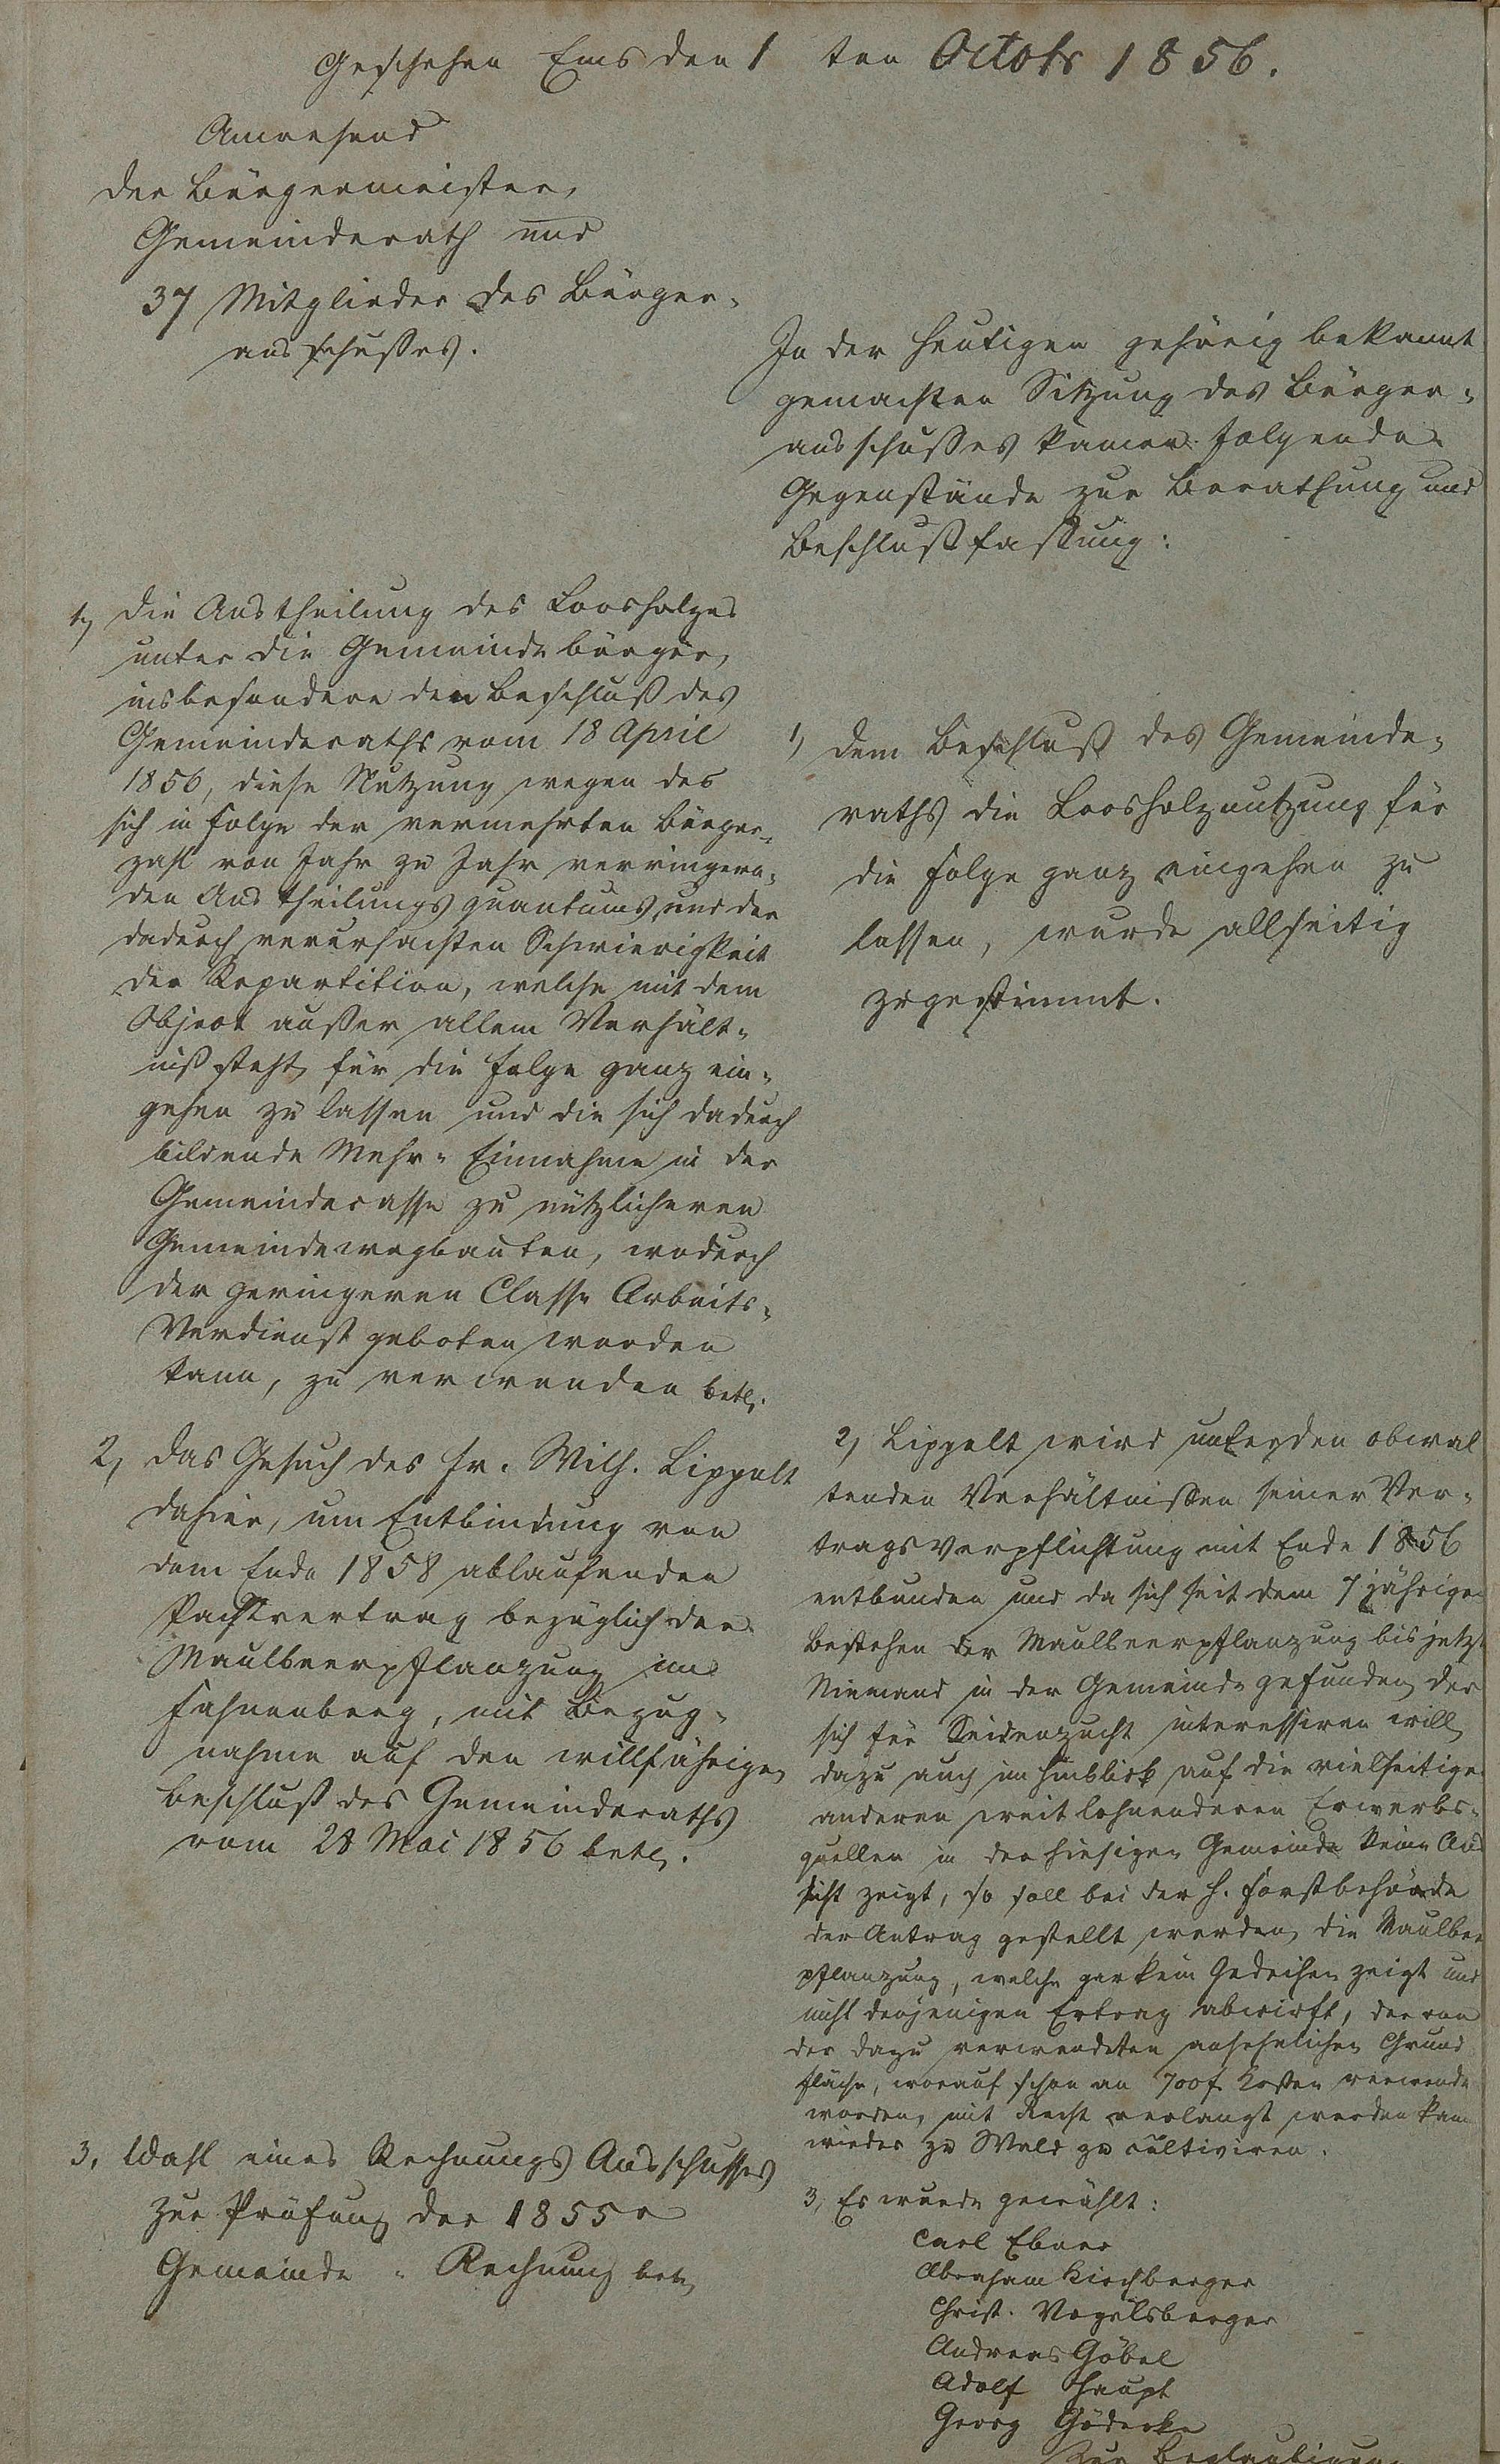 Geschehen Ems den 1 ten Octobr 1856.
Anwesend
der Bürgermeister,
Gemeinderath und
37 Mitglieder des Bürger-
ausschußes.
In der heutigen gehörig bekannt
gemachten Sitzung des Bürger-
ausschußes kamen folgende
Gegenstände zur Berathung und
Beschlußfassung:
1, die Austheilung des Loosholzes
unter die Gemeindebürger,
insbesondere den Beschluß des
Gemeinderaths vom 18 April
1856, diese Nutzung wegen des
sich in Folge der vermehrten Bürger-
zahl von Jahr zu Jahr verringern-
den Austheilungsquantums, und der
dadurch verursachten Schwierigkeit
der Repartition, welche mit dem
Object außer allem Verhält-
niß steht, für die Folge ganz ein-
gehen zu lassen und die sich dadurch
bildende Mehr-Einnahme in der
Gemeindecasse zu nützlicheren
Gemeindewegbauten, wodurch
der geringeren Classe Arbeits-
Verdienst geboten werden
kann, zu verwenden betr.
1, dem Beschluß des Gemeinde-
raths die Loosholznutzung für
die Folge ganz eingehen zu
lassen, wurde allseitig
zugestimmt.
2, das Gesuch des Fr. Wilh. Lippelt
dahier, um Entbindung von
dem Ende 1858 ablaufenden
Pachtvertrag bezüglich der
Maulbeerpflanzung im
Fahnenberg, mit Bezug-
nahme auf den willfährigen
Beschluß des Gemeinderaths
vom 28 Mai 1856 betr.
2, Lippelt wird unter den obwal
tenden Verhältnißen seiner Ver-
tragsverpflichtung mit Ende 1856
entbunden und da sich seit dem 7 jährigen
Bestehen der Maulbeerpflanzung bis jetzt
Niemand in der Gemeinde gefunden, der
sich für Seidenzucht interessiren will,
dazu auch im Hinblick auf die vielseitigen
anderen weit lohnenderen Erwerbs-
quellen in der hiesigen Gemeinde keine Aus
sicht zeigt, so soll bei der H. Forstbehörde
der Antrag gestellt werden, die Maulbeer
pflanzung, welche gar kein Gedeihen zeigt und
nicht denjenigen Ertrag abwirft, der von
der dazu verwendeten ansehnlichen Grund
fläche, worauf schon an 700 f. Kosten verwendet
worden, mit Recht verlangt werden kann
wieder zu Wald zu cultiviren.
3, Wahl eines Rechnungs Ausschusses
zur Prüfung der 1855r
Gemeinde-Rechnung betr
3, Es wurde gewählt:
Carl Ebner
Abraham Kirchberger
Christ. Vogelsberger
Andreas Göbel
Adolf Haupt
Georg Gödecke
Zur Beglaubigung